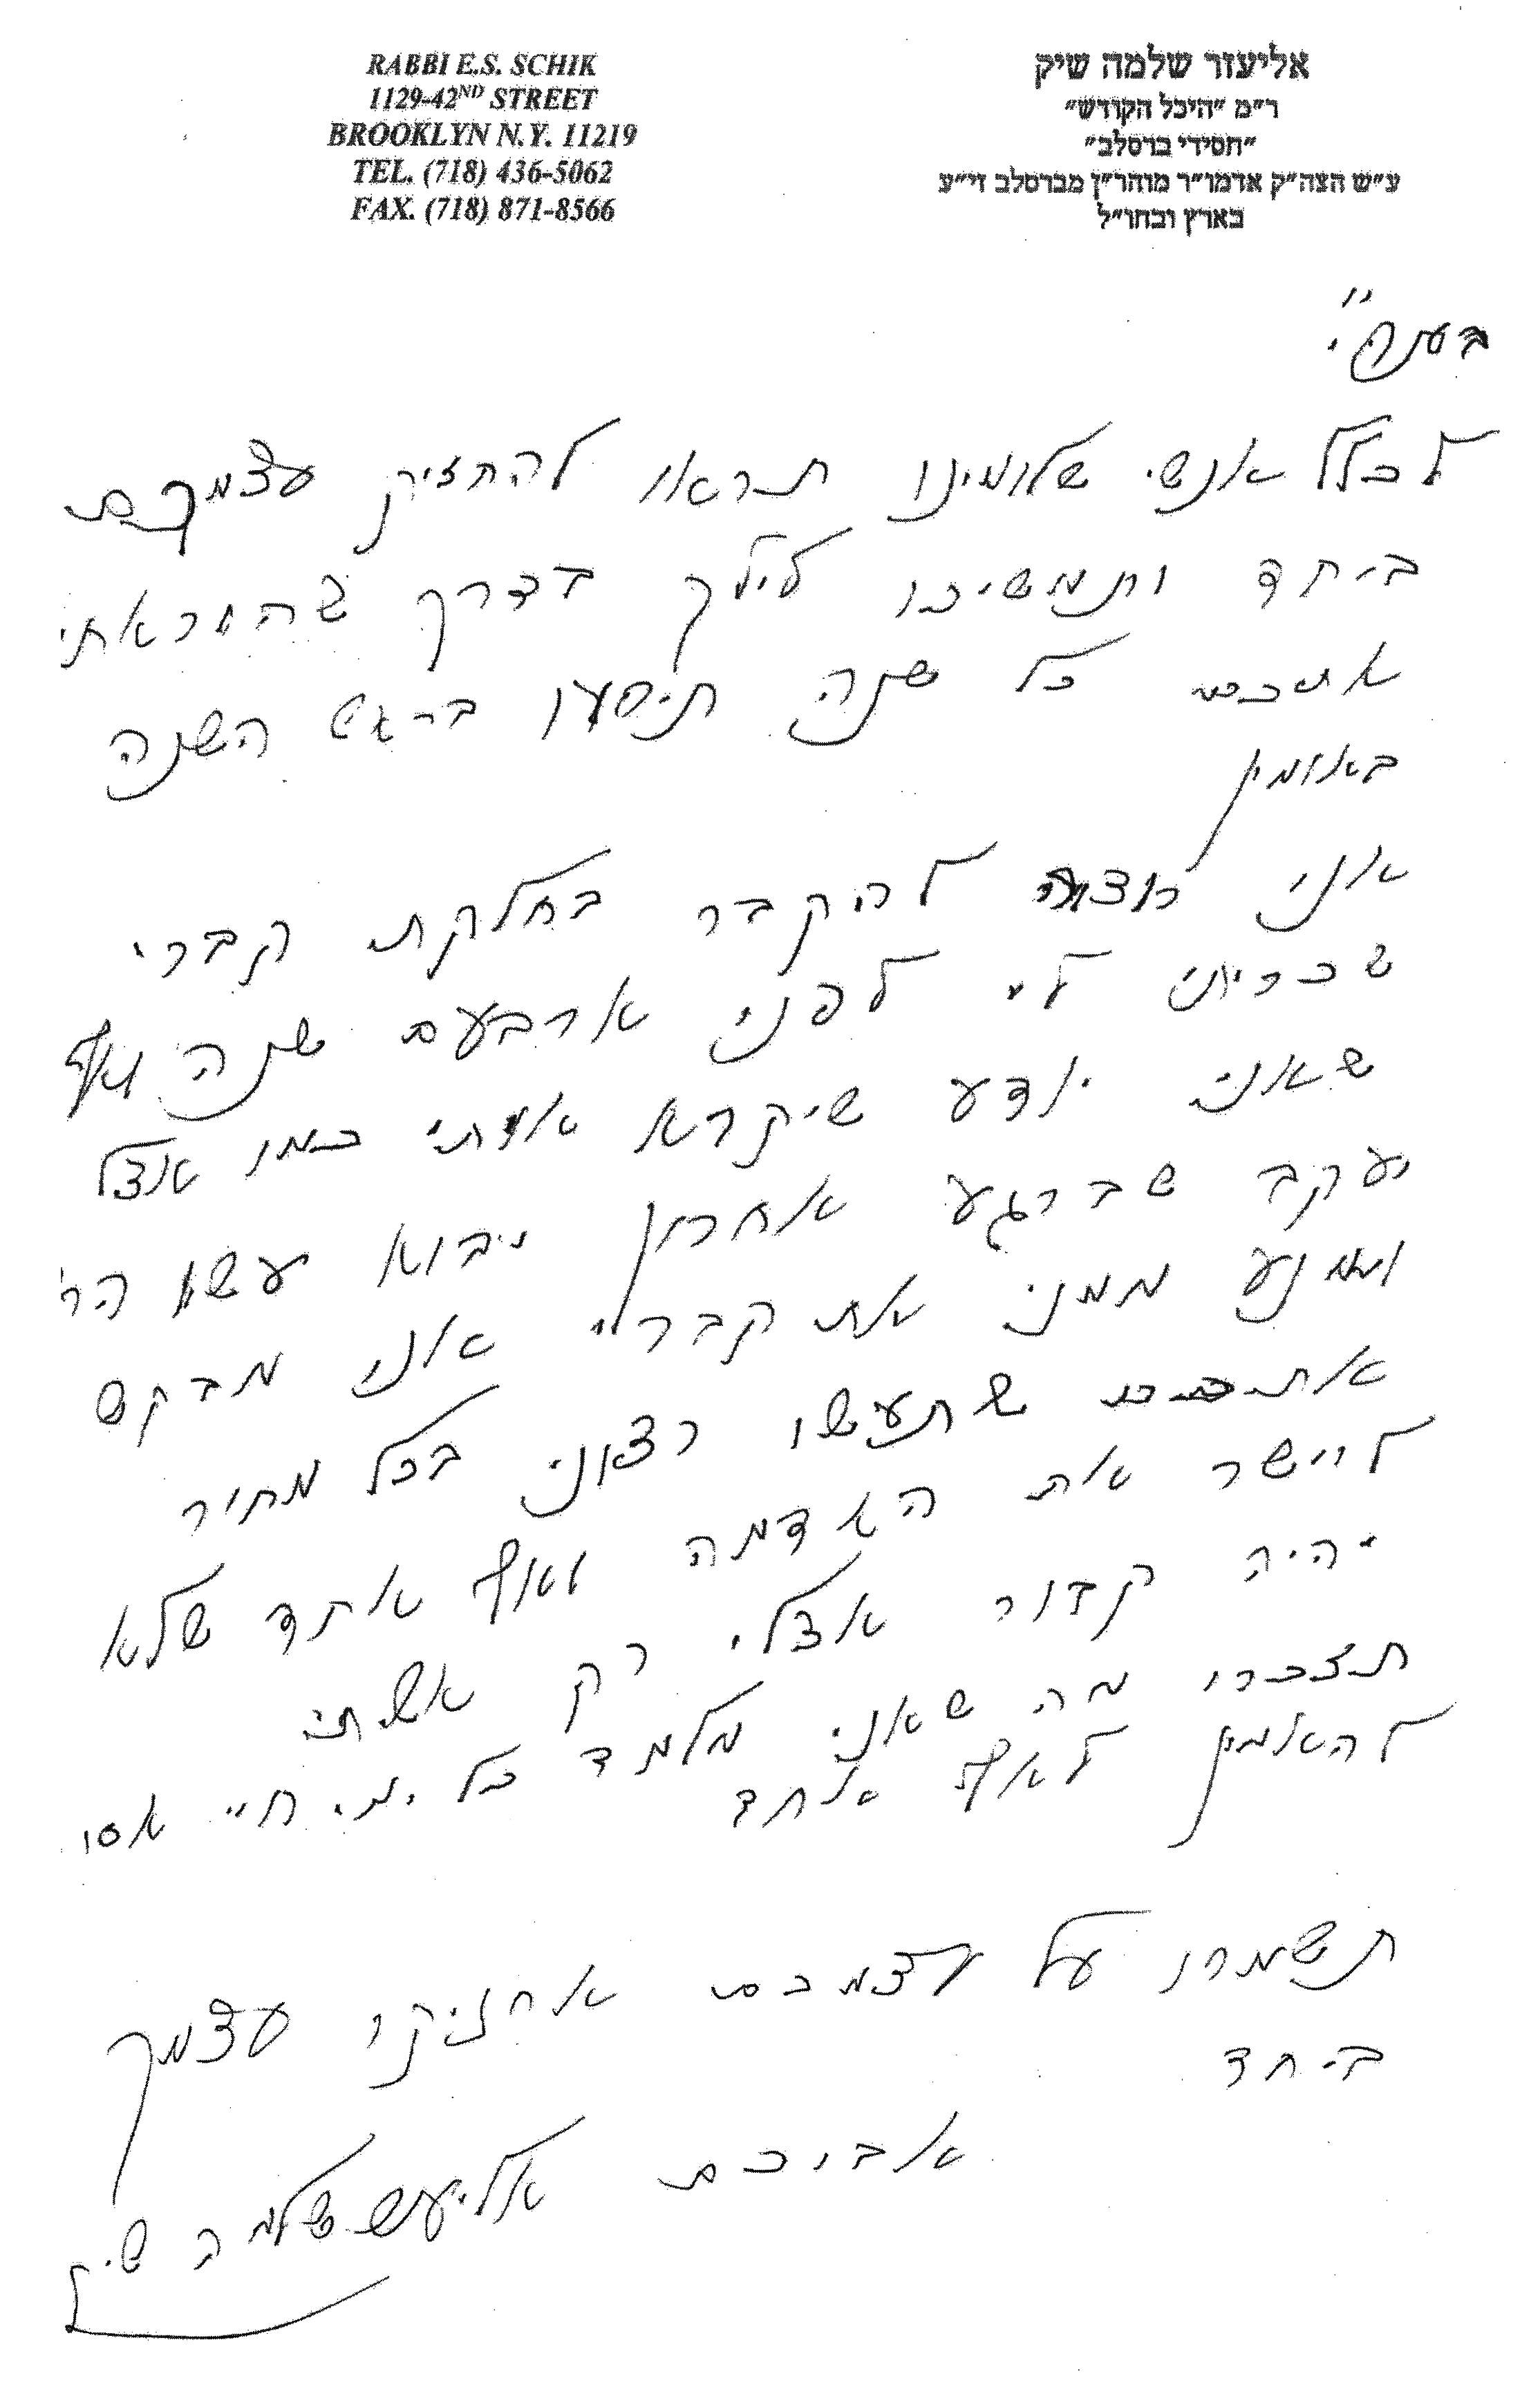 RABBI E.S. SCHIK
1129-42ND STREET
BROOKLYN N.Y. 11219
TEL. (718) 436-5062
FAX. (718) 871-8566
אליעזר שלמה שיק
ר"מ "היכל הקודש"
"חסידי ברסלב"
ע"ש הצה"ק אדמו"ר מוהר"ן מברסלב זי"ע
בארץ ובחו"ל
לכלל אנשי שלומינו תראו להחזיק עצמכם
ביחד ותמשיכו לילך בדרך שהוראתי
אתכם כל שנה תיסעו בראש השנה
באומין
אני רוצה להקבר בחלקת קברי
שכריתי לי לפני ארבעם שנה ואף
שאני יודע שיקרא אותי כמו אצל
יעקב שברגע אחרון יבוא עשו הר'
ומונע ממני את קברי אני מבקש
אתכם שתעשו רצוני בכל מחיר
ליישר את האדמה ואף אחד שלא
יהיה קבור אצלי רק אשתי
תזכרו מה שאני מלמד כל ימי חיי אסו
להאמין לאף אחד
תשמרו על עצמכם אחזיקו עצמך
ביחד
אביכם אליעזר שלמה שיק